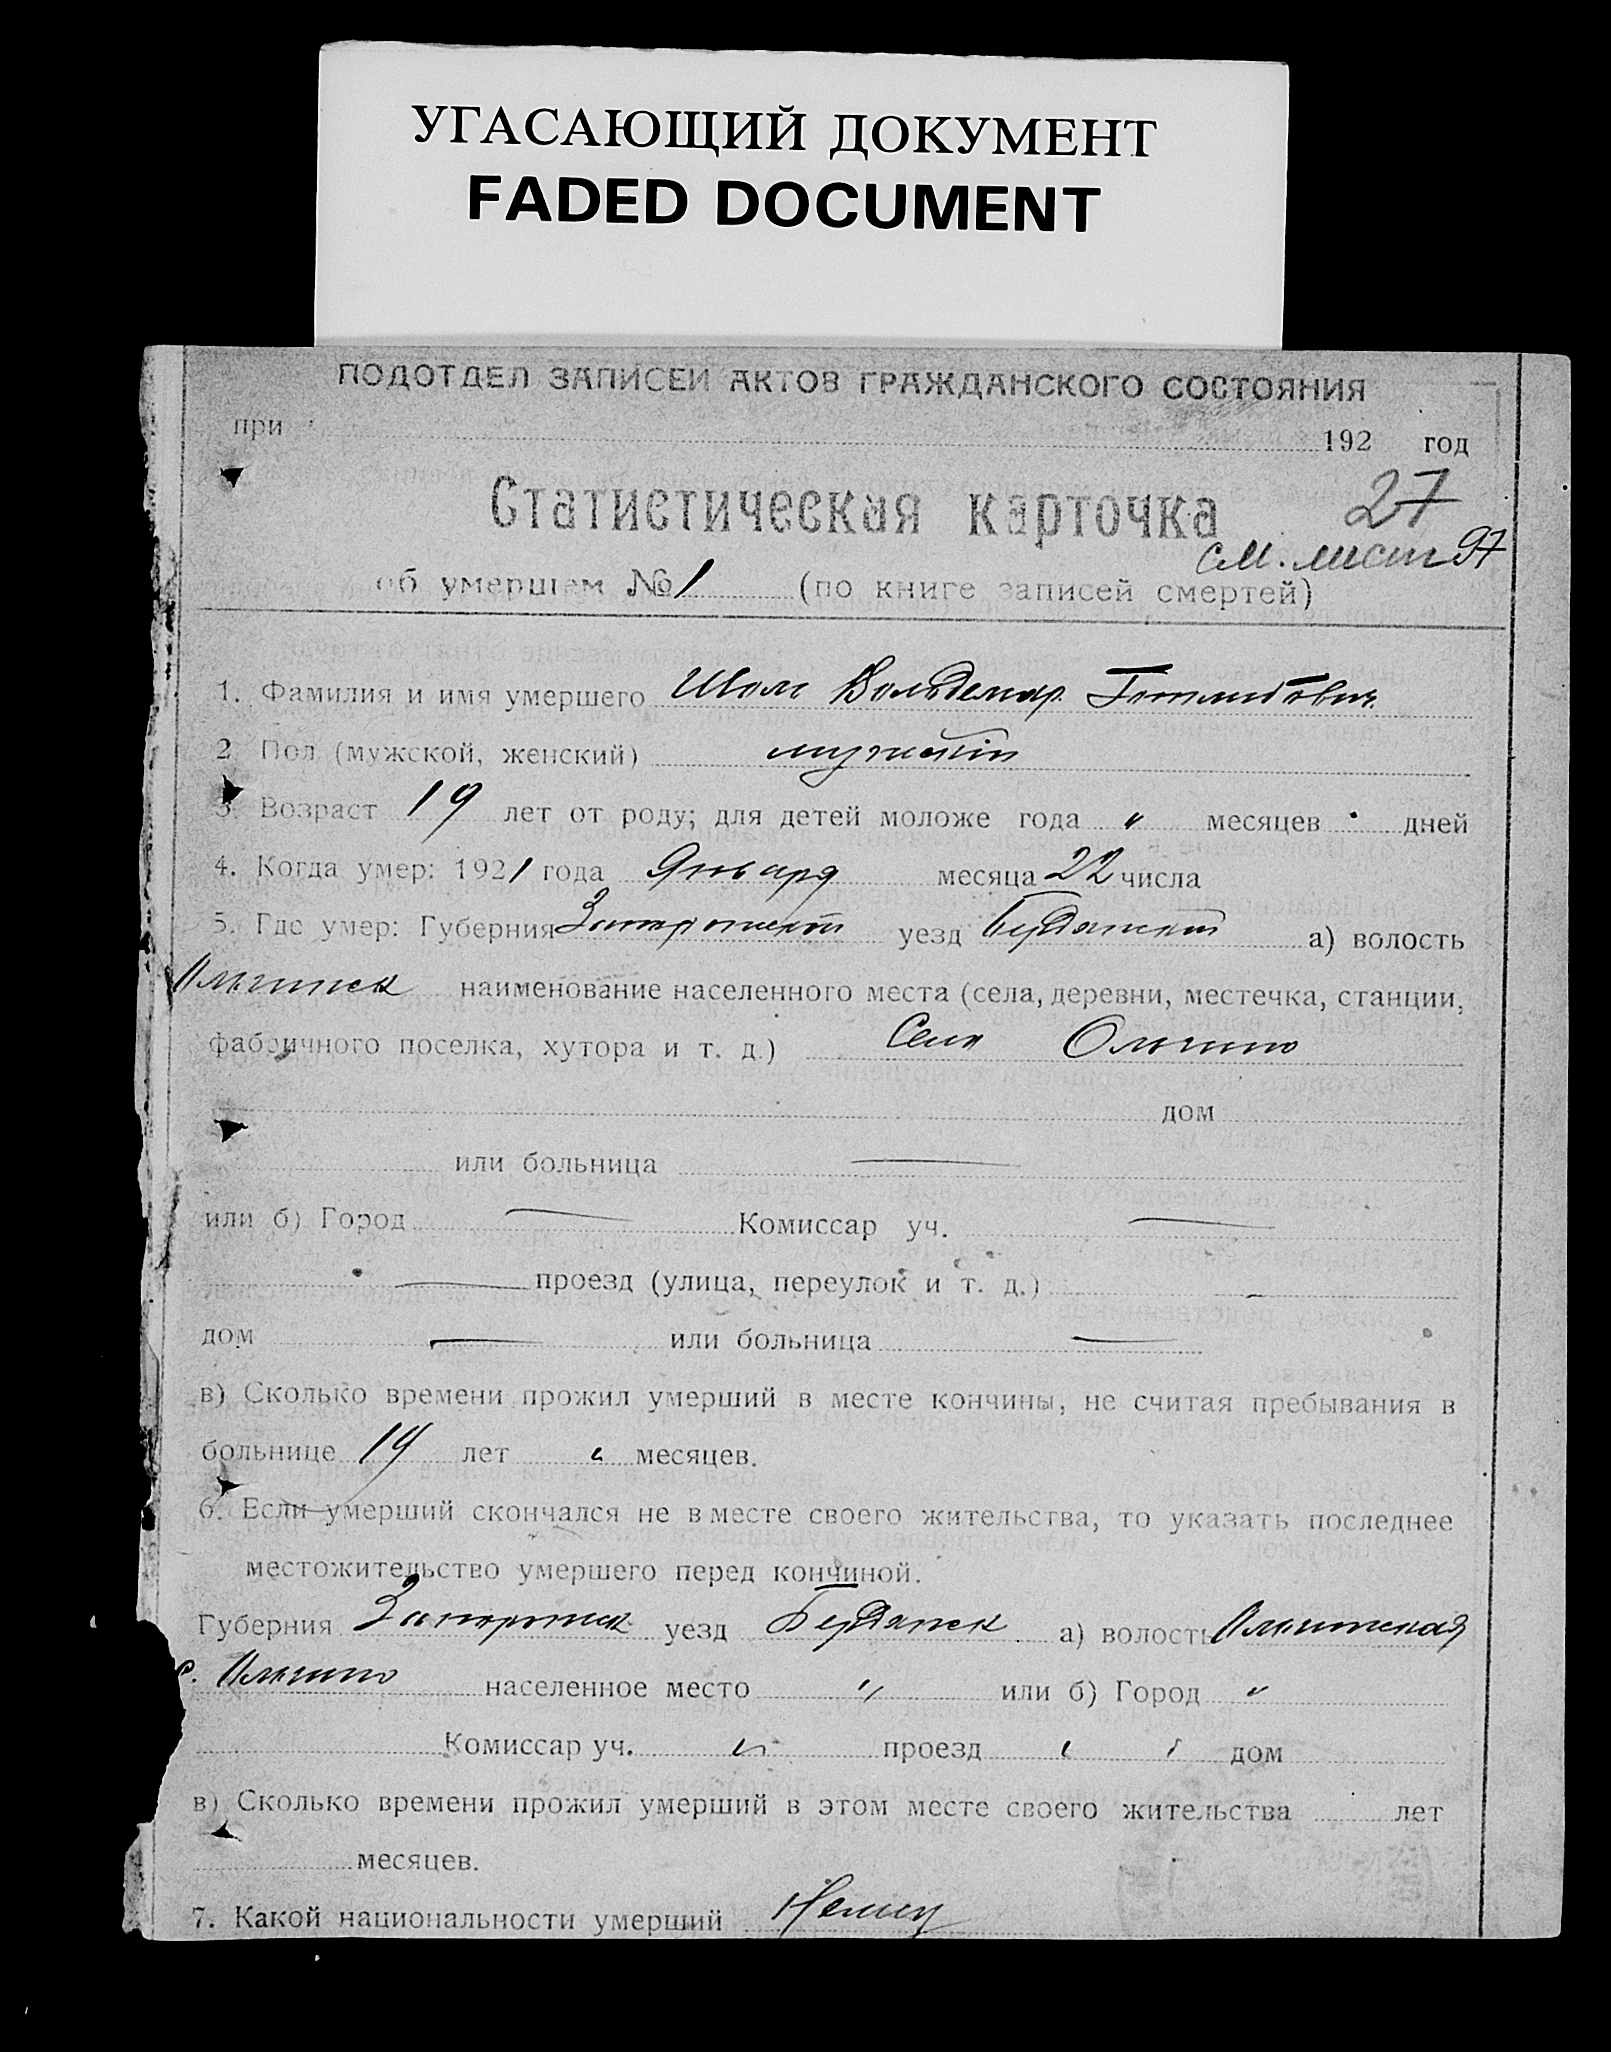 УГАСАЮЩИЙ ДОКУМЕНТ
FADED DOCUMENT
ПОДОТДЕЛ ЗАПИСЕЙ АКТОВ ГРАЖДАНСКОГО СОСТОЯНИЯ
при 192 год
Статистическая карточка 27
см. лист 97
об умершем № 1 (по книге записей смертей)
1. Фамилия и имя умершего Шолс Вольдемар Готлибович
2 Пол (мужской, женский) мужской
3. Возраст 19 лет от роду; для детей моложе года " месяцев дней
4. Когда умер: 1921 года Январд месяца 22 числа
5. Где умер: Губерния Запорожск уезд Бердянск а) волость
Ольгинск наименование населенного места (села, деревни, местечка, станции,
фабричного поселка, хутора и т. д.) Село Ольгино
дом
или больница —
или б) Город — Комиссар уч. —
— проезд (улица, переулок и т. д.) –
дом — или больница —
в) Сколько времени прожил умерший в месте кончины, не считая пребывания в
больнице 19 лет " месяцев.
6. Если умерший скончался не в месте своего жительства, то указать последнее
местожительство умершего перед кончиной.
Губерния Запорожск уезд Бердянск а) волость Ольгинская
с. Ольгино населенное место " или б) Город "
Комиссар уч. " проезд " дом
в) Сколько времени прожил умерший в этом месте своего жительства лет
месяцев.
7. Какой национальности умерший Немец